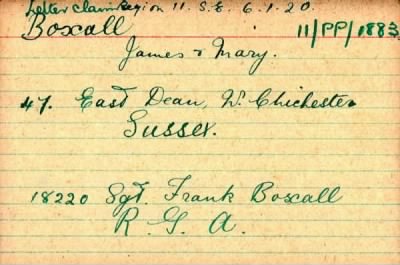 Letter Claim Region 11. S.E. 6.1.20.
Boxall 11/PP/1883
James & Mary.
47. East Dean, N. Chichester
Sussex.
18220 Sgt. Frank Boxall
R. G. A.